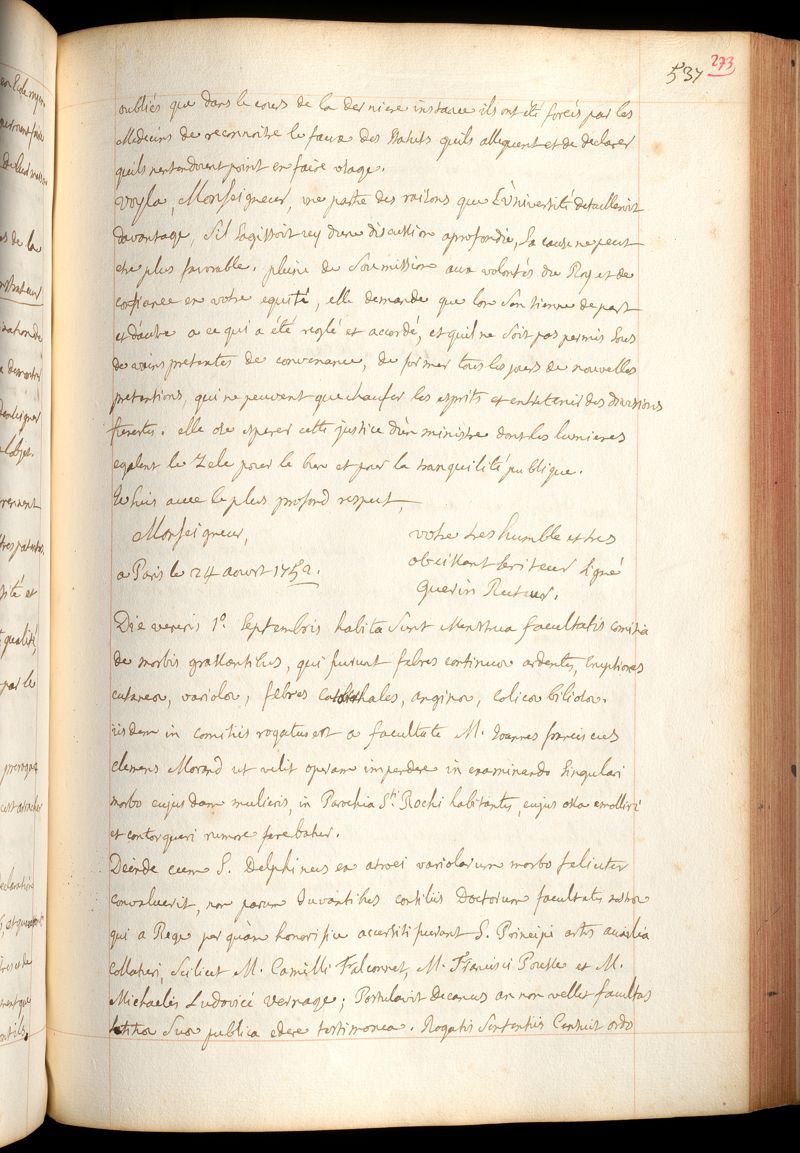 537 273
oubliés que dans le cours de la derniere instance ils ont été forcés par les
Medecins de reconnoitre le faux des Statuts quils alleguent et de declarer
quils nentendoient point en faire usage.
Voyla, Monseigneur, une partie des raisons que L'Université detailleroit
davantage, Sil Sagissoit icy d'une discussion aprofondie, Sa cause ne peut
etre plus favorable. pleine de Soumission aux volontés du Roy et de
confiance en votre equité, elle demande que lon Sen tienne de part
et dautre a ce qui a été reglé et accordé, et quil ne Soit pas permis Sous
de vains pretextes de convenance, de former tous les jours de nouvelles
pretentions, qui ne peuvent que chaufer les esprits et entretenir des divisions
funestes. elle ose esperer cette justice d'un ministre dont les lumieres
egalent le Zele pour le bien et pour la tranquilité publique.
Je Suis avec le plus profond respect,
Monseigneur,
votre tres humble et tres
obeissant Serviteur Signé
Guerin Recteur.
a Paris le 24 aoust 1752.
Die veneris 1º. Septembris habita Sunt Menstrua facultatis comitia
de morbis grassantibus, qui fuerunt febres continuæ ardentes, Eruptiones
cutaneæ, variolæ, febres catarrhales, anginæ, colicæ biliosæ.
iisdem in comitiis rogatus est a facultate M. Joannes franciscus
Clemens Morand ut velit operam impendere in examinando Singulari
morbo cujusdam mulieris, in Parochia Sti. Rochi habitantis, cujus ossa emolliri
et contorqueri rumore ferebatur.
Deinde cum S. Delphinus ex atroci variolarum morbo feliciter
convaluerit, non parum Juvantibus consiliis Doctorum facultatis nostræ
qui a Rege perquàm honorifice accersiti fuerant S. Principi artis auxilia
collaturi, Scilicet M. Camilli Falconnet, M. Francisci Pousse et M.
Michaelis Ludovici Vernage; Postulavit decanus an non vellet facultas
lætitiæ Suæ publica edere testimonia. Rogatis Sententiis Censuit ordo